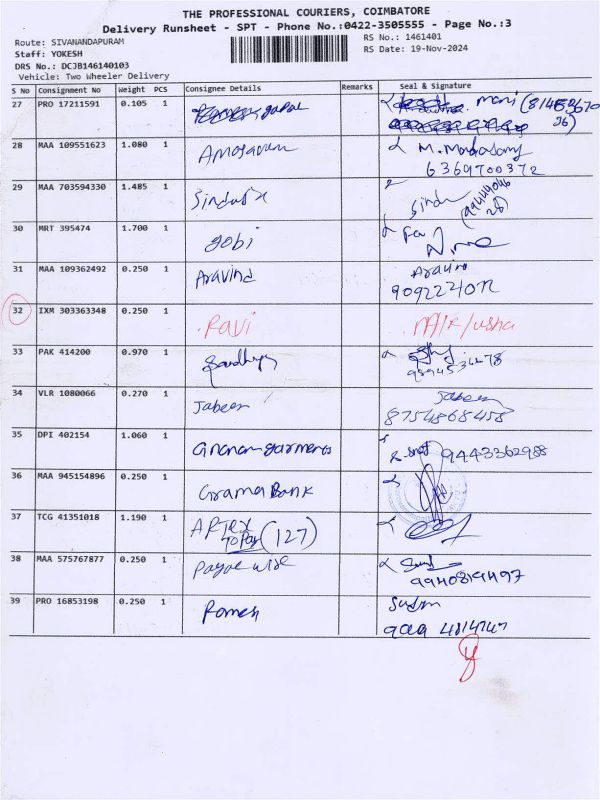 THE PROFESSIONAL COURIERS, COIMBATORE
Delivery Runsheet - SPT - Phone No.:0422-3505555 - Page No.:3
Route: SIVANANDAPURAM
RS No.: 1461401
Staff: YOKESH
RS Date: 19-Nov-2024
DRS No.: DCJB146140103
Vehicle: Two Wheeler Delivery
S No Consignment No Weight PCS Consignee Details Remarks Seal & Signature
27 PRO 17211591 0.105 1 gopal mani
28 MAA 109551623 1.080 1
6369700372
29 MAA 703594330 1.485 1 Sindu
30 MRT 395474 1.700 1 gobi
31 MAA 109362492 0.250 1 Aravind Aravin
32 IXM 303363348 0.250 1 Ravi N/A/R/usha
33 PAK 414200 0.970 1
34 VLR 1080066 0.270 1 Jabeen Jabeen
8754868458
35 DPI 402154 1.060 1 Gnanam garments 9443362988
36 MAA 945154896 0.250 1 Grama Bank
37 TCG 41351018 1.190 1 APTEX
TO Pay (127)
38 MAA 575767877 0.250 1 Payoe wise
9940819497
39 PRO 16853198 0.250 1 Romesh